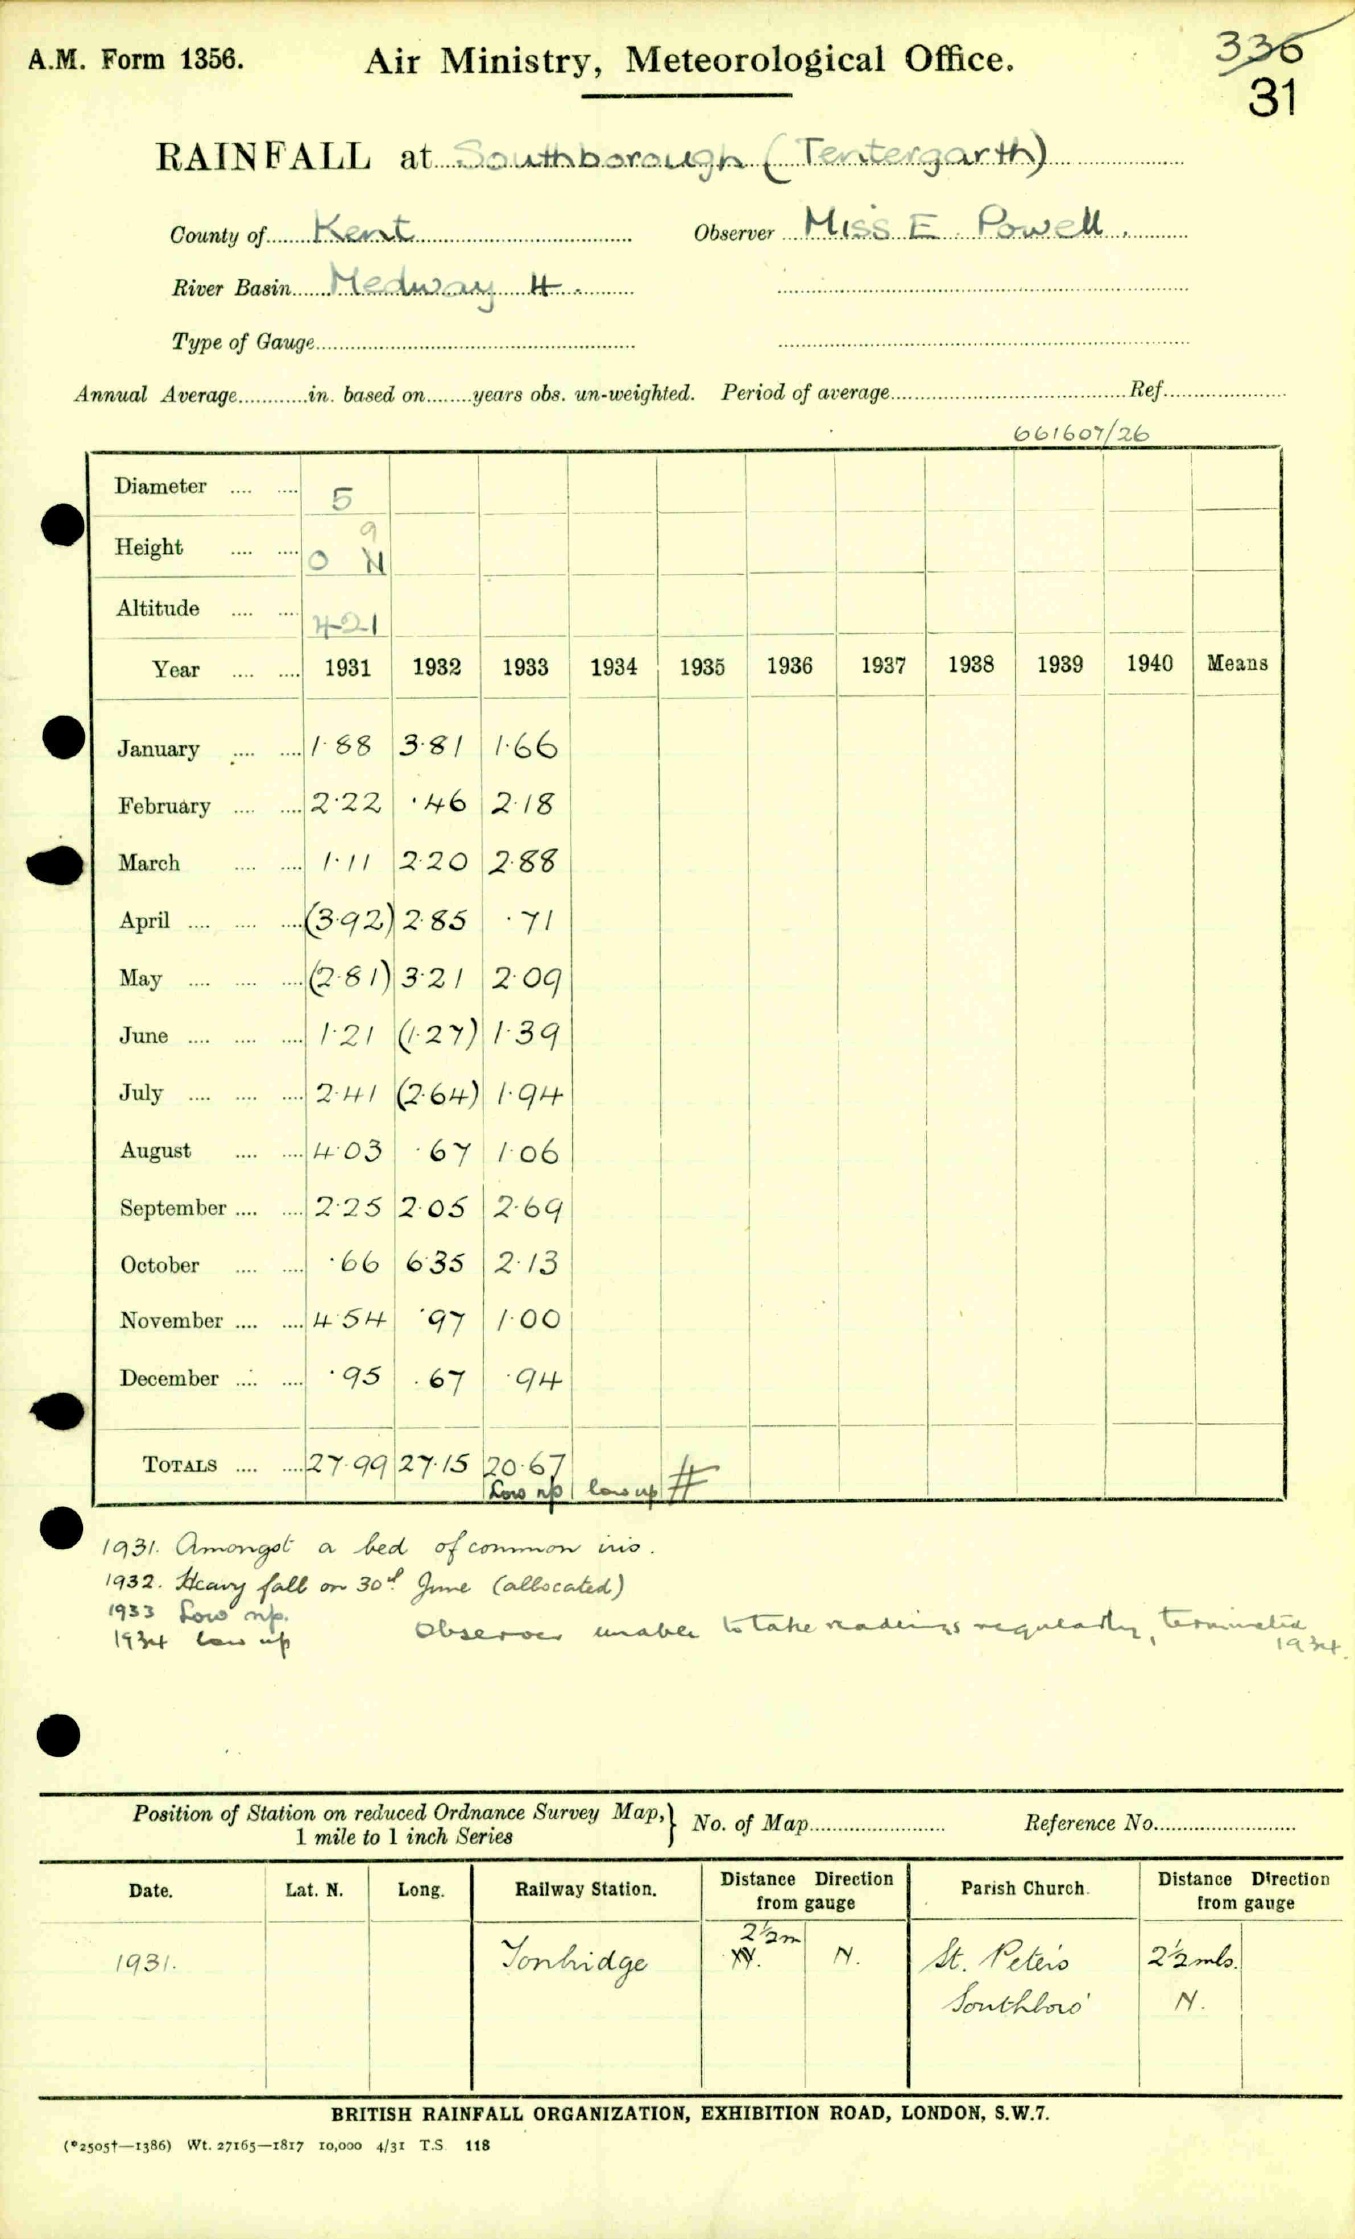 A.M. Form 1356.
Air Ministry, Meteorological Office.
336
31
RAINFALL at Southborough (Tentergarth)
County of Kent Observer Miss E. Powell.
River Basin Medway 4.
Type of Gauge
Annual Average in. based on years obs. un-weighted. Period of average Ref.
661607/26
Diameter 5
Height 0 9
Altitude 421
Year 1931 1932 1933 1934 1935 1936 1937 1938 1939 1940 Means
January 1.88 3.81 1.66
February 2.22 .46 2.18
March 1.11 2.20 2.88
April (3.92) 2.85 .71
May (2.81) 3.21 2.09
June 1.21 (1.27) 1.39
July 2.41 (2.64) 1.94
August 4.03 .67 1.06
September 2.25 2.05 2.69
October .66 6.35 2.13
November 4.54 .97 1.00
December .95 .67 .94
TOTALS 27.99 27.15 20.67
1931. Amongst a bed of common iris.
1932. Heavy fall on 30th June (allocated)
1933
1934
Observer unable to take readings regularly, terminated
1934.
Position of Station on reduced Ordnance Survey Map, 1 mile to 1 inch Series } No. of Map Reference No.
Date. Lat. N. Long. Railway Station. Distance Direction from gauge Parish Church. Distance Direction from gauge
1931. Tonbridge 2½m N. St. Peter's 2½ mls.
Southboro' N.
BRITISH RAINFALL ORGANIZATION, EXHIBITION ROAD, LONDON, S.W.7.
(*2505†—1386) Wt. 27165—1817 10,000 4/31 T.S. 118